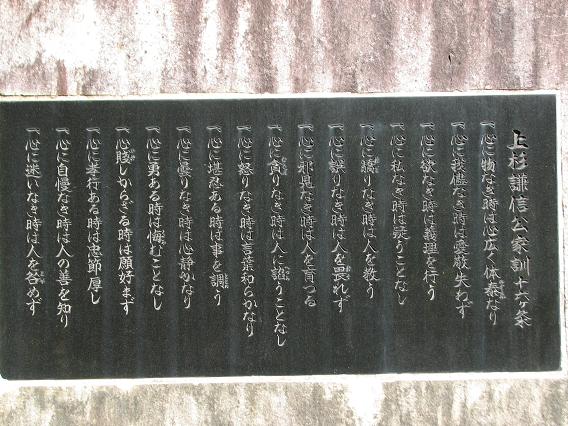 上杉謙信公家訓 十六ケ条
一、心に物なき時は心広く体泰なり
一、心に我儘なき時は愛敬失わず
一、心に欲なき時は義理を行う
一、心に私なき時は疑うことなし
一、心に驕りなき時は人を教う
一、心に誤りなき時は人を畏れず
一、心に邪見なき時は人を育つる
一、心に貪りなき時は人に諂うことなし
一、心に怒りなき時は言葉和らかなり
一、心に堪忍ある時は事を調う
一、心に曇りなき時は心静かなり
一、心に勇ある時は悔むことなし
一、心賤しからざる時は願好まず
一、心に孝行ある時は忠節厚し
一、心に自慢なき時は人の善を知り
一、心に迷いなき時は人を咎めず